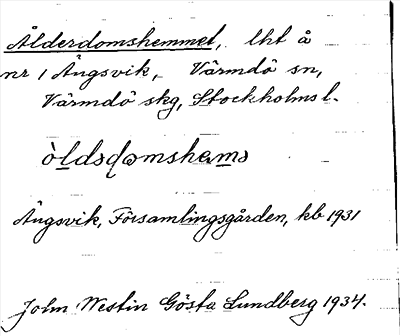 Ålderdomshemmet, lht å
nr 1 Ängsvik, Värmdö sn,
Värmdö skg, Stockholms l.
òldsdomshems
Ängsvik, Församlingsgården, kb 1931
John Westin Gösta Lundberg 1934.